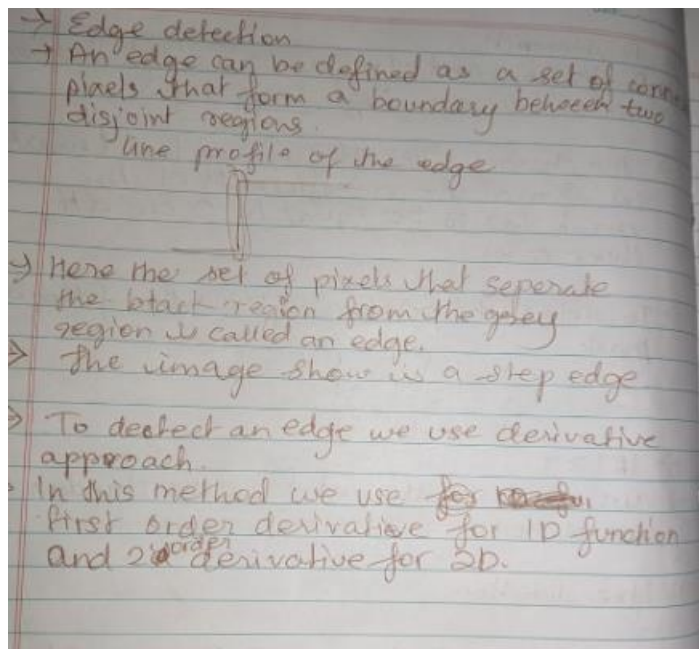 → Edge detection
→ An edge can be defined as a set of
pixels that form a boundary between two
disjoint regions.
line profile of the edge
→ Here the set of pixels that seperate
the black region from the grey
region is called an edge.
→ The image show is a step edge
→ To dectect an edge we use derivative
approach.
In this method we use for
first order derivative for 1D function
and 2nd order derivative for 2D.